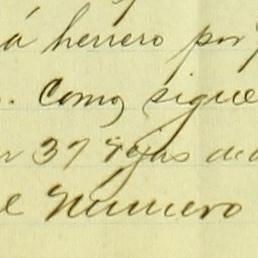 á herrero por
. Como sigue
37 rejas
el Numero